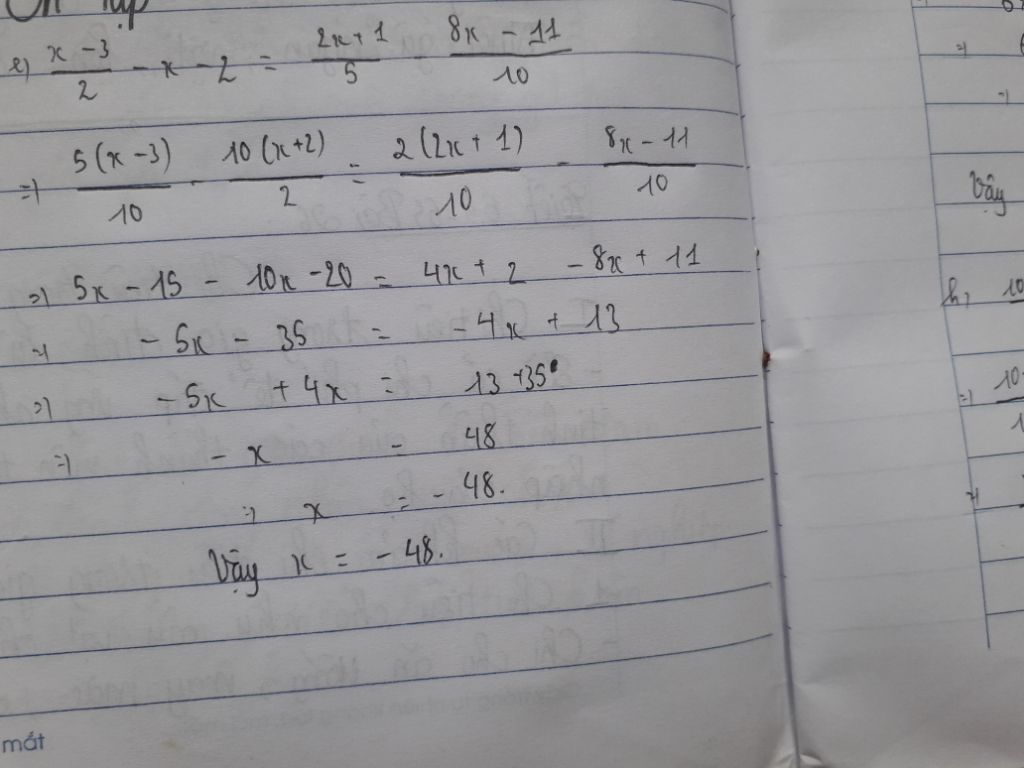 Ôn tập
e) \frac{x-3}{2} - x - 2 = \frac{2x+1}{5} - \frac{8x-11}{10}
=) \frac{5(x-3)}{10} - \frac{10(x+2)}{2} = \frac{2(2x+1)}{10} - \frac{8x-11}{10}
=) 5x - 15 - 10x - 20 = 4x + 2 - 8x + 11
=) - 5x - 35 = - 4x + 13
=) - 5x + 4x = 13 + 35
=) - x = 48
=) x = - 48.
Vậy x = - 48.
mát
Vậy
h, 10